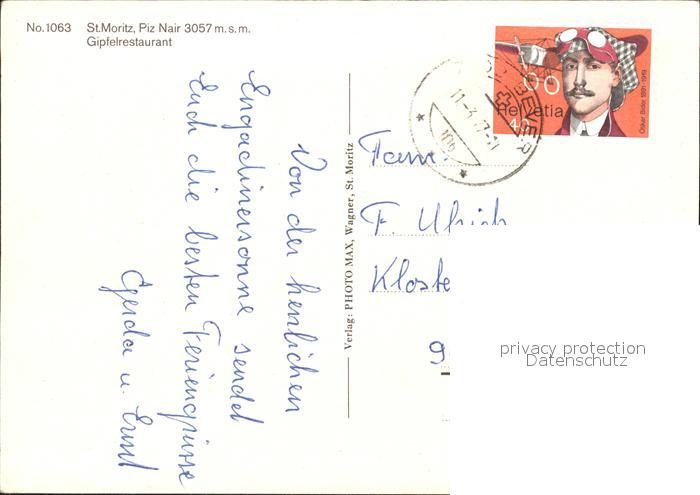 No. 1063 St. Moritz, Piz Nair 3057 m. s. m.
Gipfelrestaurant
Von der herrlichen
Engadinersonne sendet
Euch die besten Feriengrüsse
Gerda u. Ernst
Verlag: PHOTO MAX, Wagner, St. Moritz
BEVER
Helvetia
40
Oskar Bider 1891-1919
Fam.
F. Ulrich
Kloste
9
privacy protection
Datenschutz